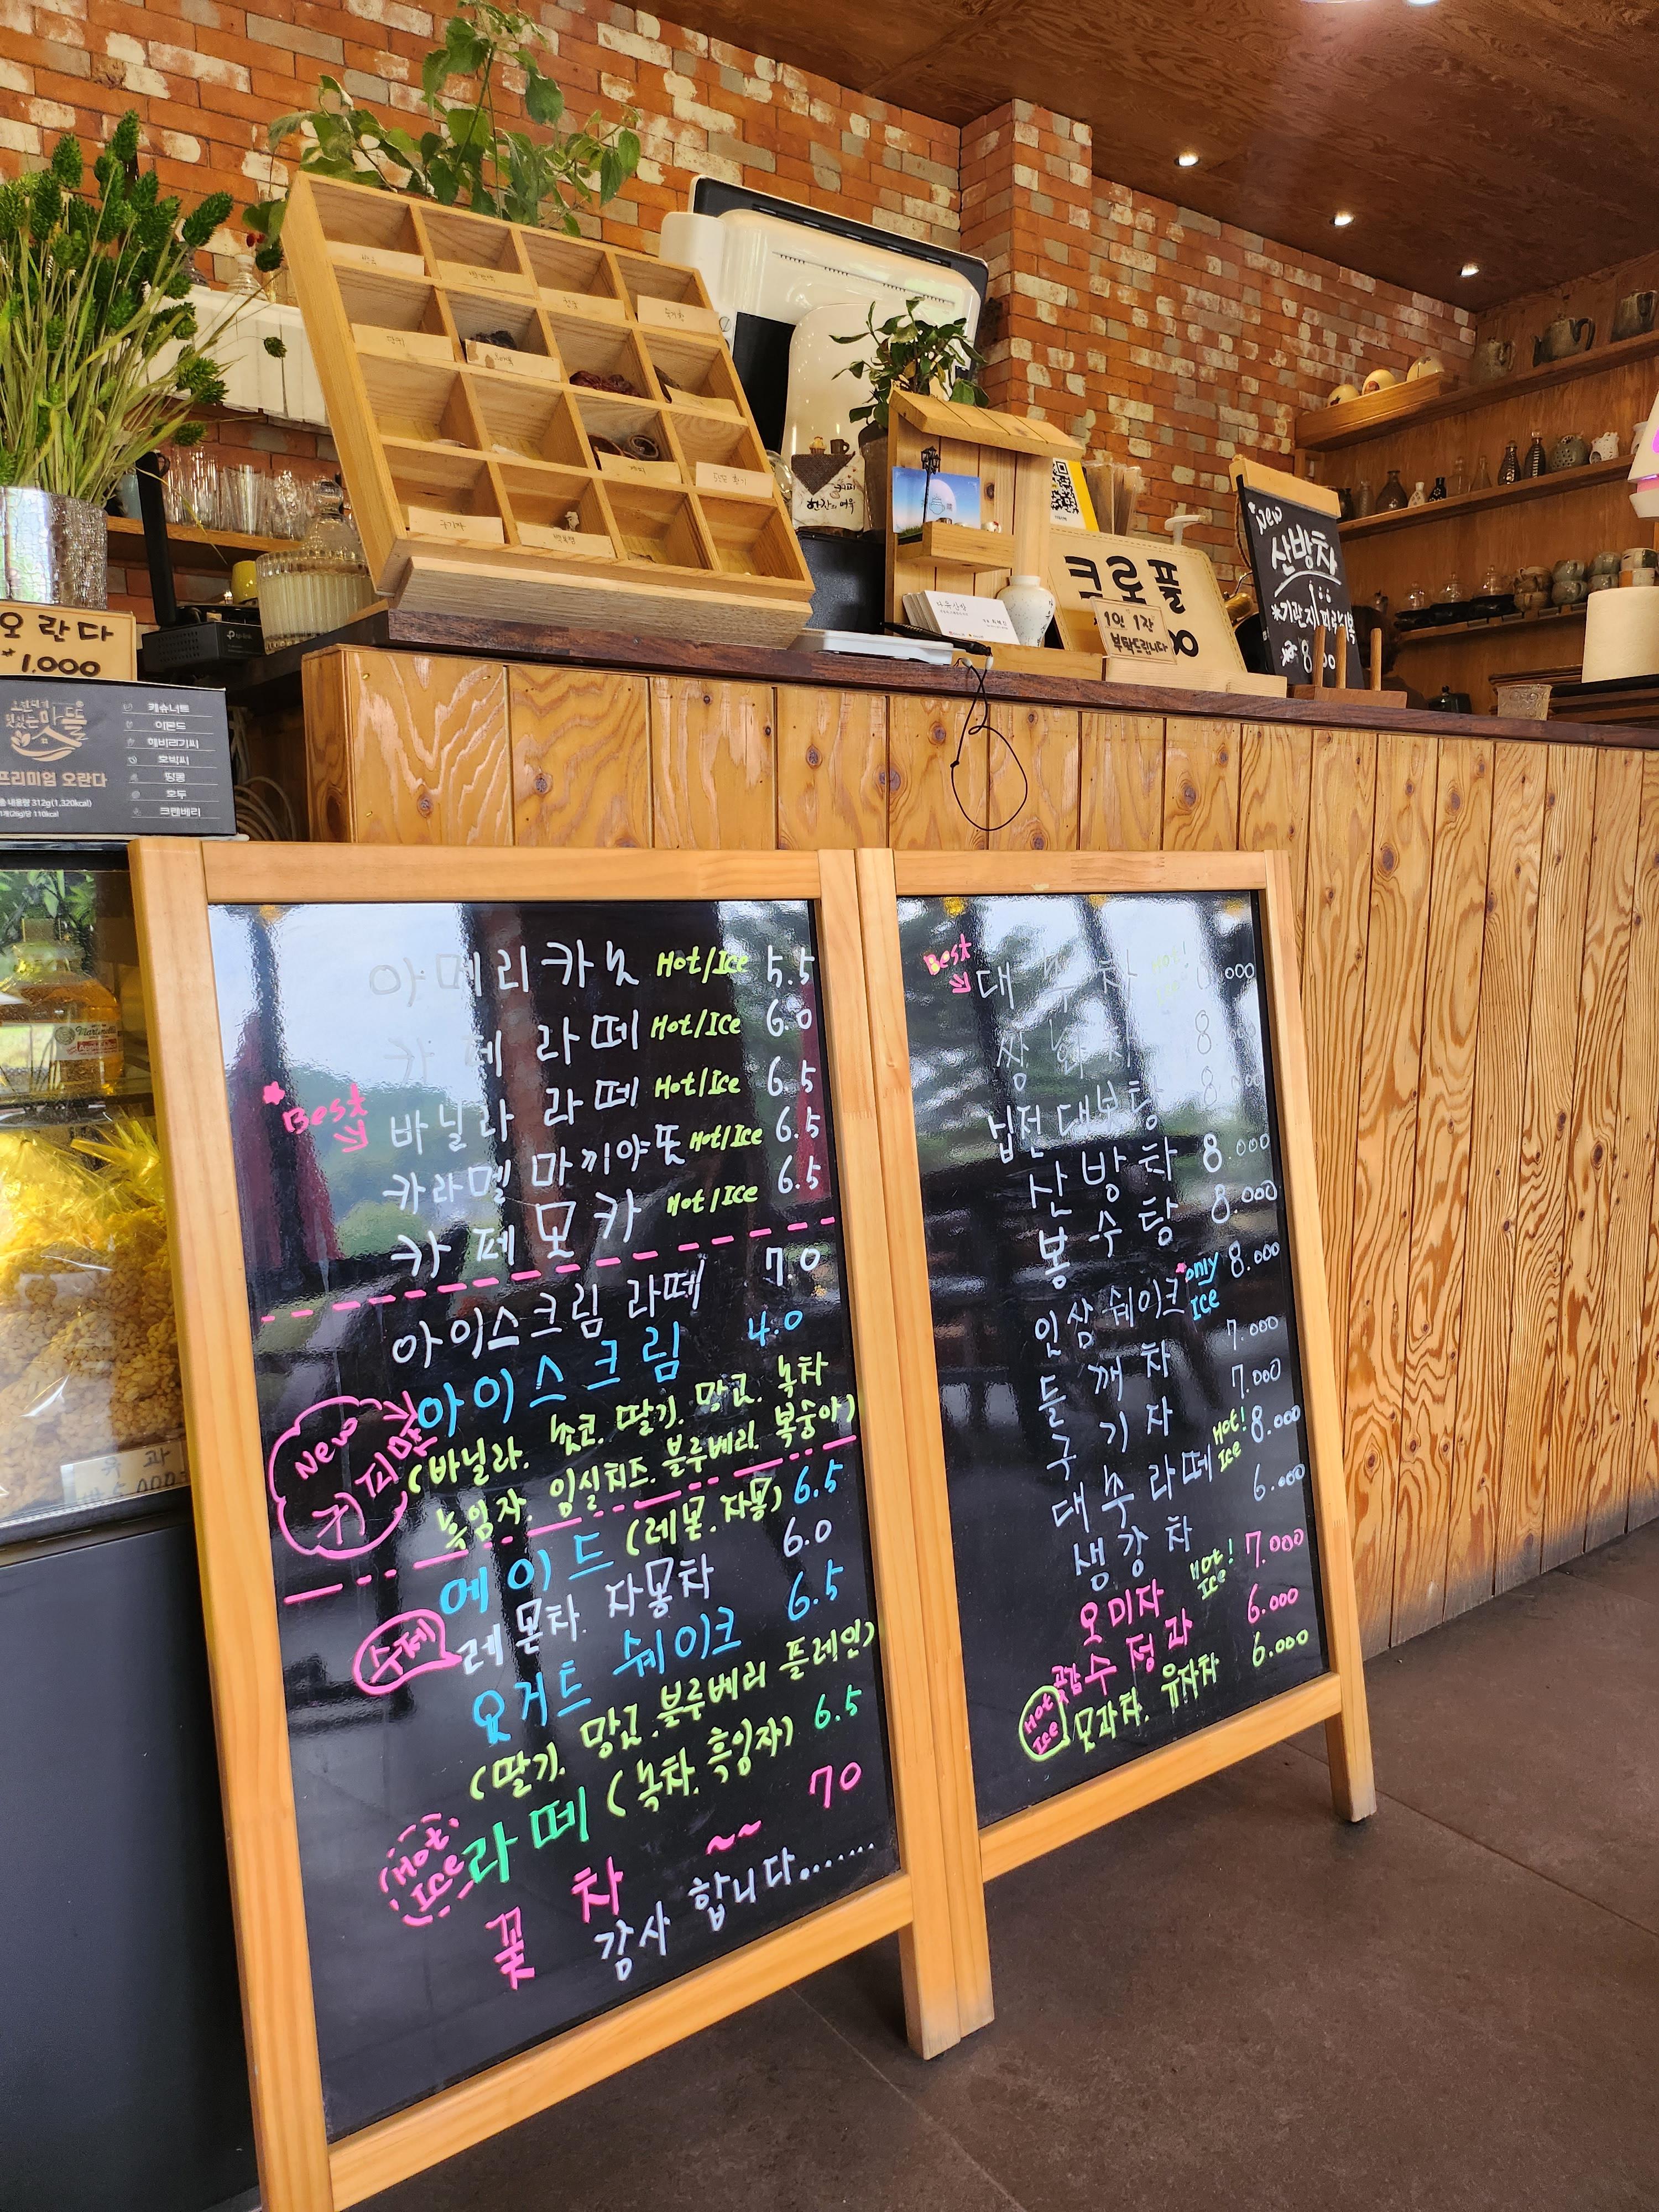 New
산방차
8
크로플
1인 1잔
부탁드립니다
오란다
1.000
맛있는 맛뜰
프리미엄 오란다
312g(1,320kcal)
110kcal
캐슈너트
아몬드
해바라기씨
호박씨
땅콩
호두
크랜베리
아메리카노 Hot/Ice 5.5
카페 라떼 Hot/Ice 6.0
*Best
바닐라 라떼 Hot/Ice 6.5
카라멜 마끼아또 Hot/Ice 6.5
카페모카 Hot/Ice 6.5
아이스크림 라떼 7.0
New
아이스크림 4.0
(바닐라. 쵸코. 딸기. 망고. 녹차
흑임자. 임실치즈. 블루베리. 복숭아)
에이드 (레몬. 자몽) 6.5
수제
레몬차. 자몽차 6.0
요거트 쉐이크 6.5
(딸기. 망고. 블루베리 플레인)
Hot
Ice
라떼 (녹차. 흑임자) 6.5
꽃 차 ~~ 70
감사합니다.......
Best
대추차
쌍화차 8
십전대보탕 8
산방차 8.000
봉수탕 8.000
인삼쉐이크 *only Ice 8.000
들깨차 7.000
구기자 7.000
대추라떼 Hot! Ice 8.000
생강차 6.000
오미자 Hot! Ice 7.000
곶감수정과 6.000
Hot
Ice
모과차. 유자차 6.000